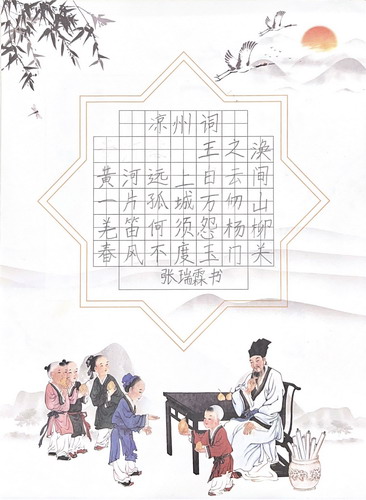 凉州词
王之涣
黄河远上白云间
一片孤城万仞山
羌笛何须怨杨柳
春风不度玉门关
张瑞霖书